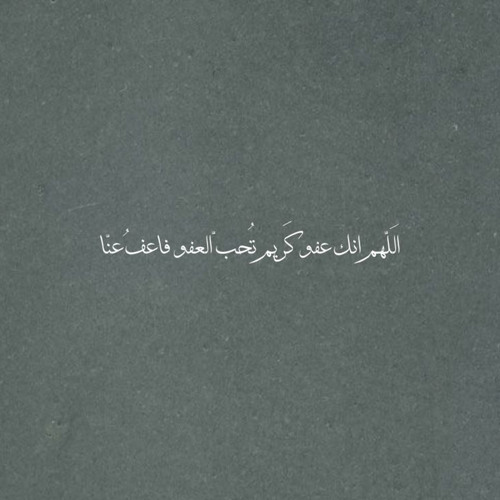 اَللّهم انك عفو كَريم تُحب ْالعفو فاعفُ عنْا